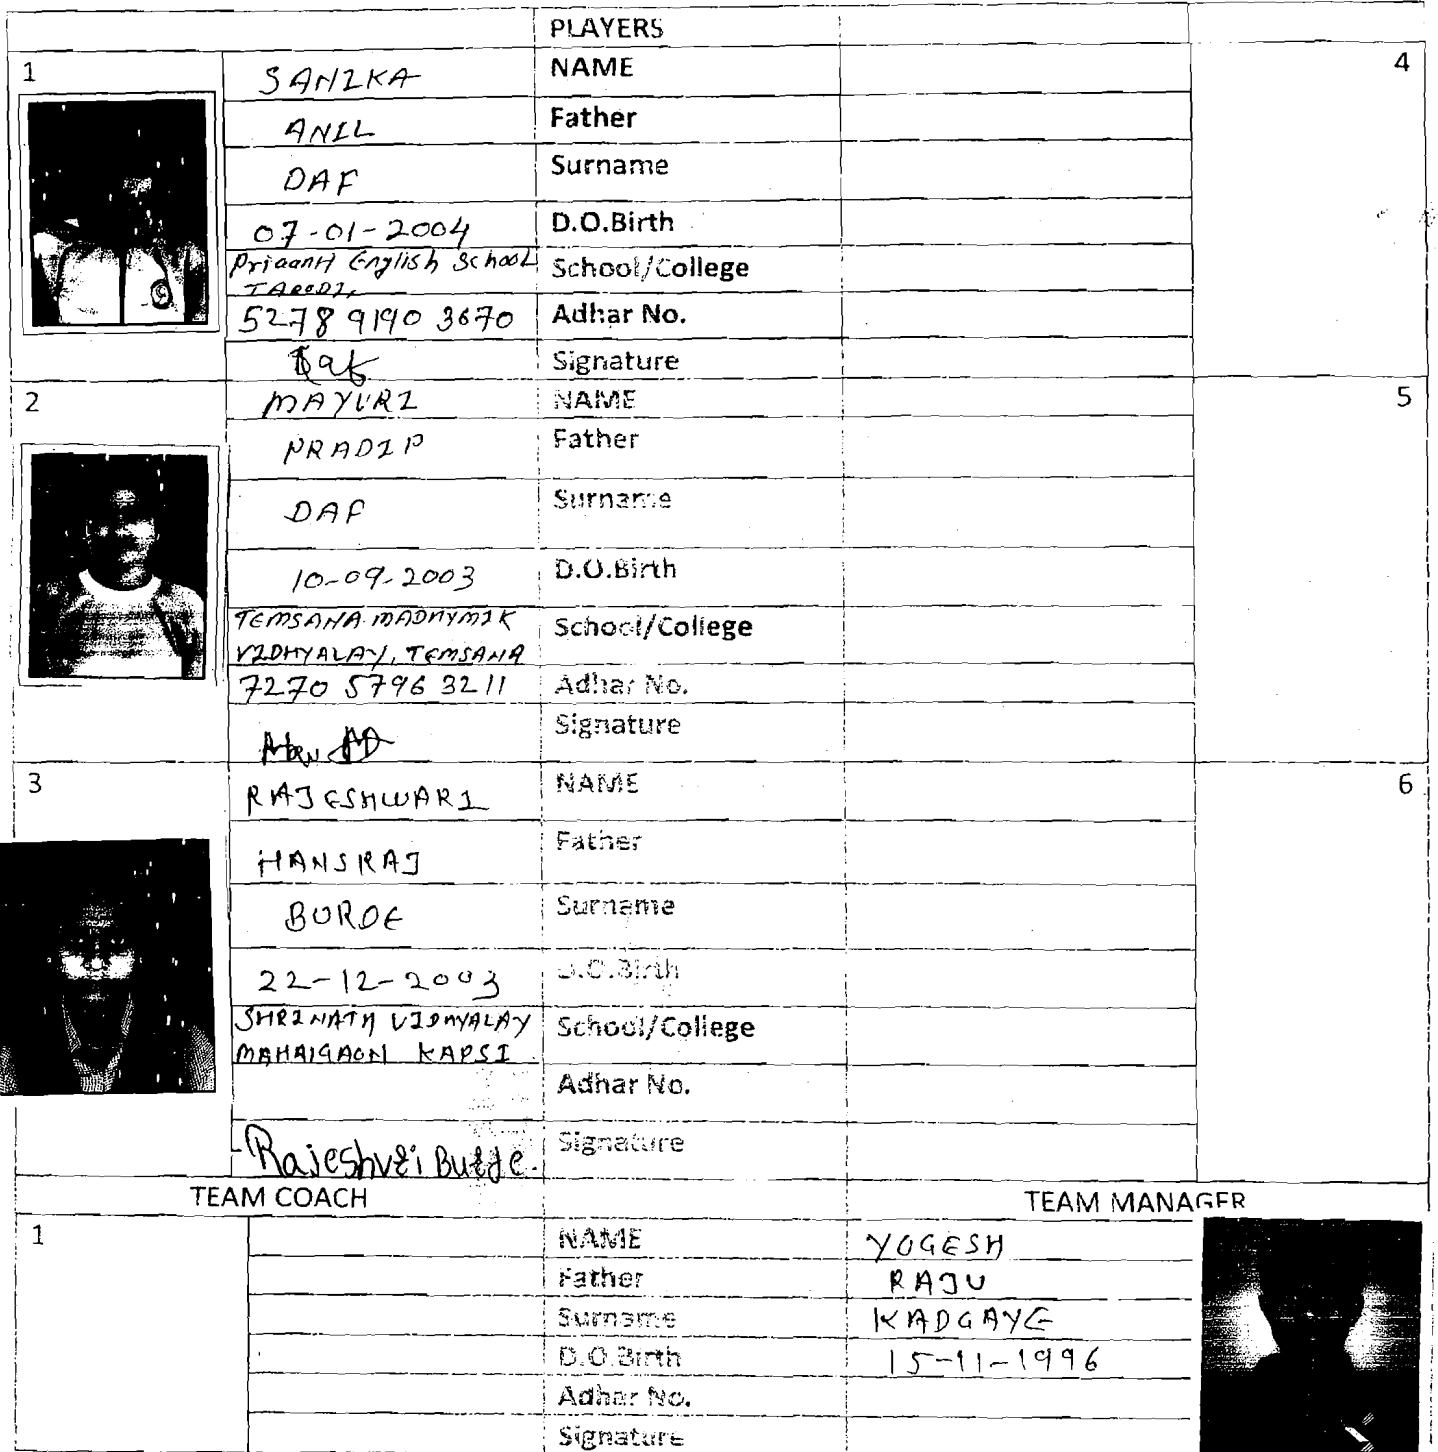 PLAYERS
1 SANIKA NAME 4
ANIL Father
DAF Surname
07-01-2004 D.O.Birth
English School School/College
5278 9190 3670 Adhar No.
Signature
2 MAYURI NAME 5
PRADIP Father
DAF Surname
10-09-2003 D.O.Birth
TEMSANA MADHYMIK School/College
VIDHYALAY, TEMSANA
7270 5796 3211 Adhar No.
Signature
3 RAJESHWARI NAME 6
HANSRAJ Father
BURDE Surname
22-12-2003 D.O.Birth
SHRINATH VIDHYALAY School/College
MAHALGAON KAPSI
Adhar No.
Signature
TEAM COACH TEAM MANAGER
1 NAME YOGESH
Father RAJU
Surname KADGAYE
D.O.Birth 15-11-1996
Adhar No.
Signature